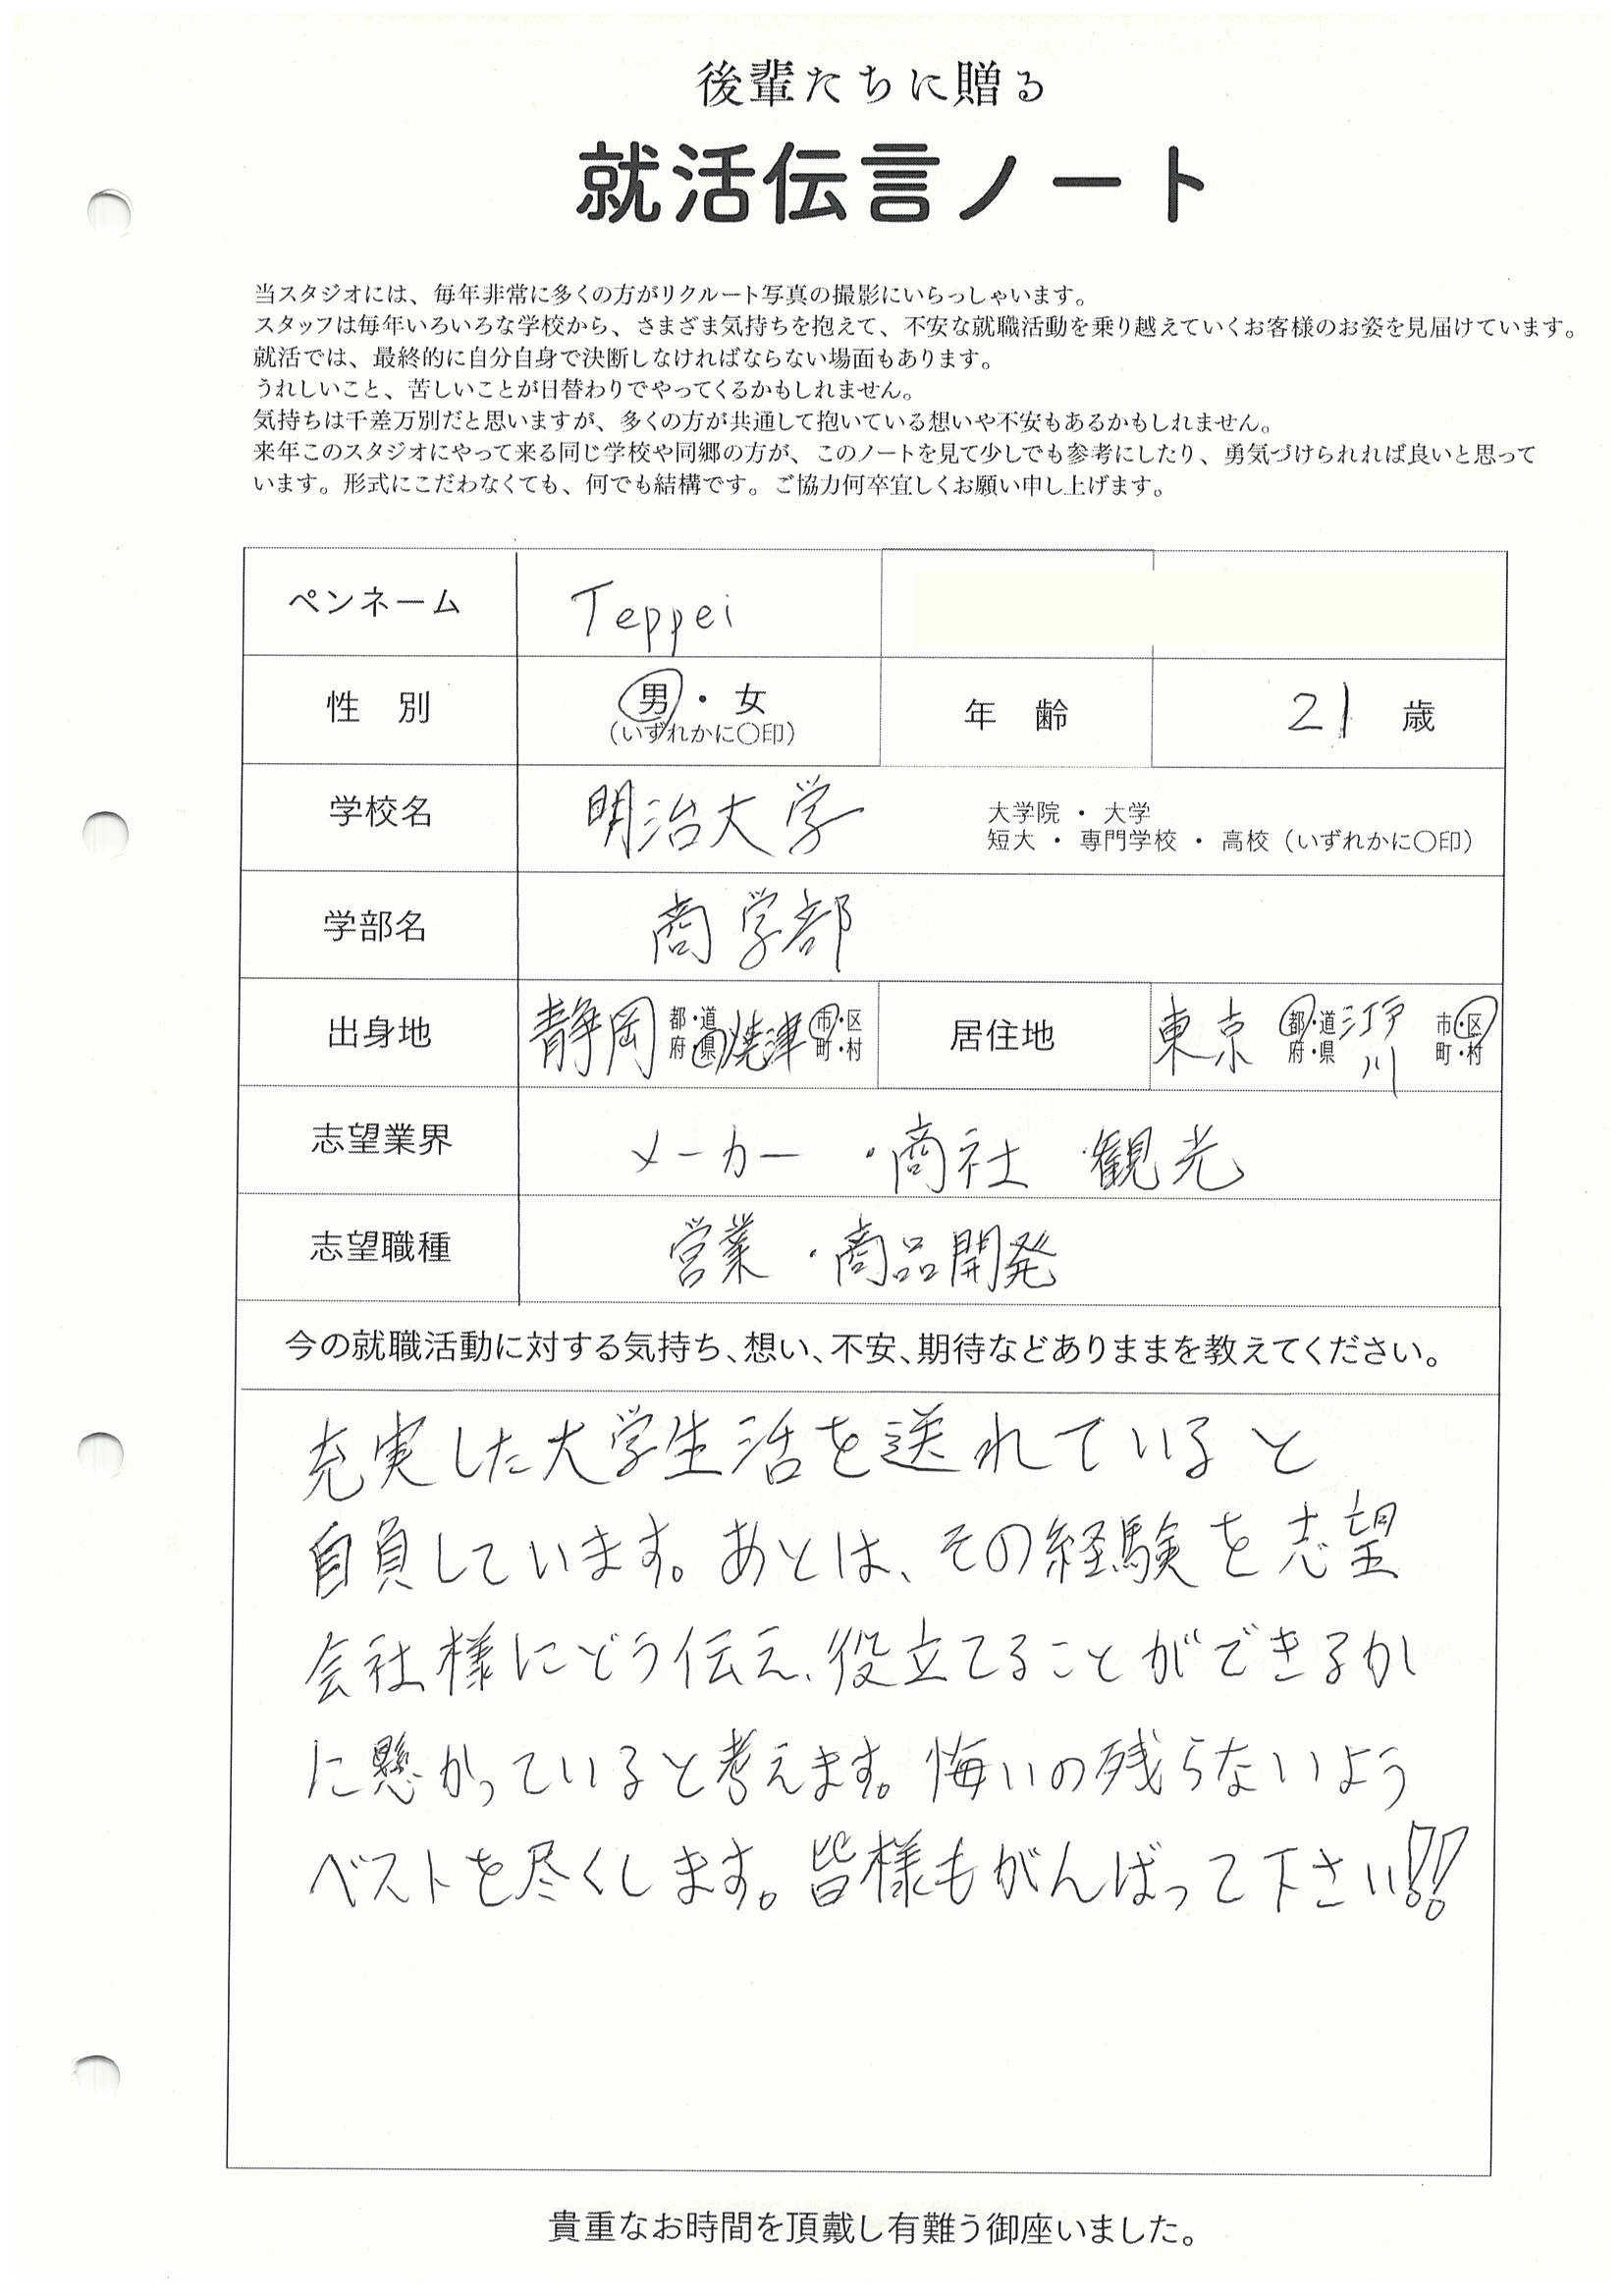 後輩たちに贈る
就活伝言ノート
当スタジオには、毎年非常に多くの方がリクルート写真の撮影にいらっしゃいます。
スタッフは毎年いろいろな学校から、さまざま気持ちを抱えて、不安な就職活動を乗り越えていくお客様のお姿を見届けています。
就活では、最終的に自分自身で決断しなければならない場面もあります。
うれしいこと、苦しいことが日替わりでやってくるかもしれません。
気持ちは千差万別だと思いますが、多くの方が共通して抱いている想いや不安もあるかもしれません。
来年このスタジオにやって来る同じ学校や同郷の方が、このノートを見て少しでも参考にしたり、勇気づけられれば良いと思って
います。形式にこだわなくても、何でも結構です。ご協力何卒宜しくお願い申し上げます。
ペンネーム Teppei
性別 男・女 年齢 21歳
(いずれかに〇印)
学校名 明治大学 大学院・大学
短大・専門学校・高校(いずれかに〇印)
学部名 商学部
出身地 静岡 都・道 焼津 市・区 居住地 東京 都・道 江戸 市・区
府・県 町・村 府・県 川 町・村
志望業界 メーカー ・商社 ・観光
志望職種 営業 ・商品開発
今の就職活動に対する気持ち、想い、不安、期待などありままを教えてください。
充実した大学生活を送れていると
自負しています。あとは、その経験を志望
会社様にどう伝え、役立てることができるか
に懸かっていると考えます。悔いの残らないよう
ベストを尽くします。皆様もがんばって下さい!!
貴重なお時間を頂戴し有難う御座いました。